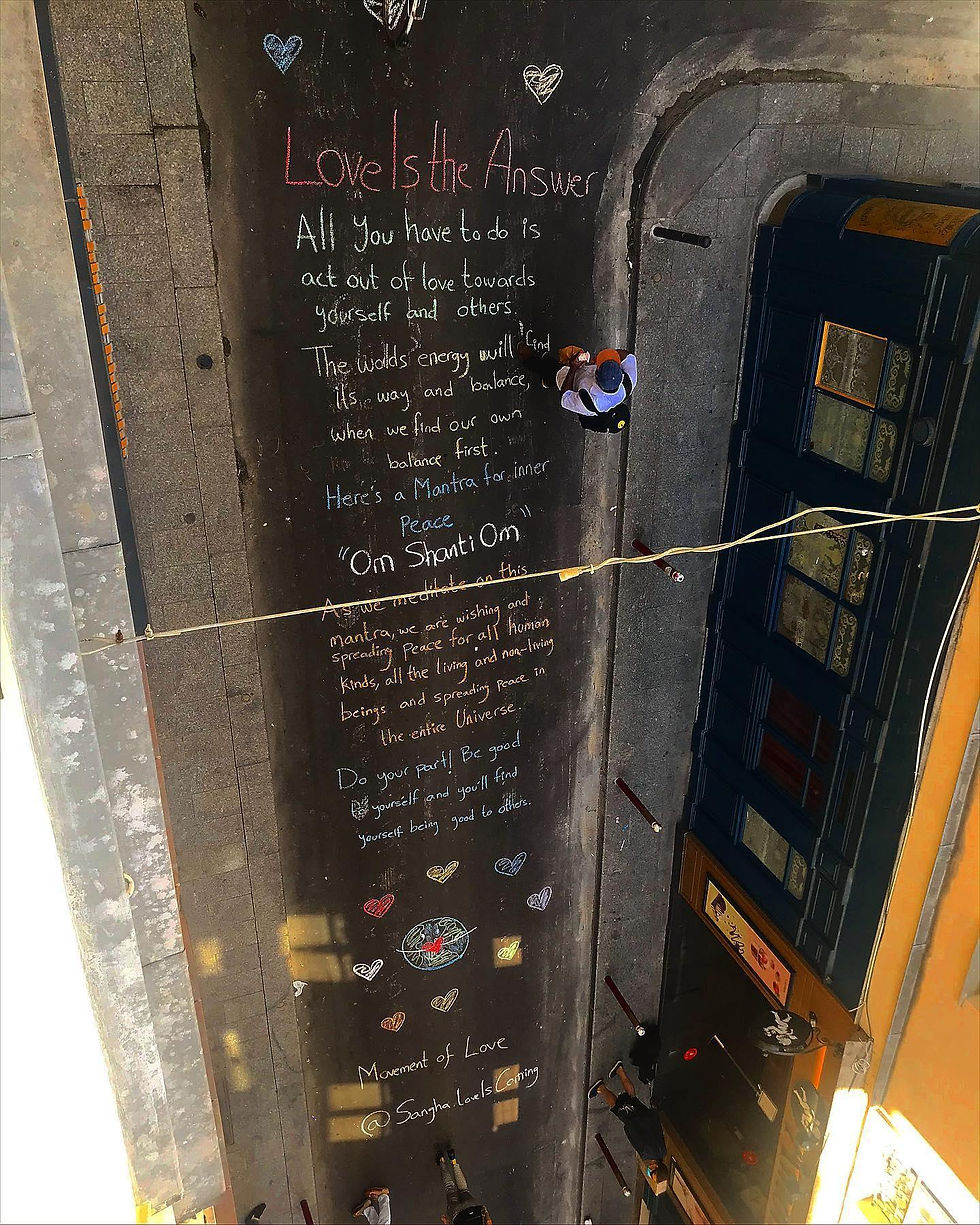 Love Is the Answer
All You have to do is
act out of love towards
yourself and others.
The wolds energy will find
its way and balance,
when we find our own
balance first.
Here's a Mantra for inner
Peace
"Om Shanti Om"
As we meditate on this
mantra, we are wishing and
spreading Peace for all human
Kinds, all the living and non-living
beings and spreading peace in
the entire Universe.
Do your part! Be good
to yourself and you'll find
yourself being good to others.
Movement of Love
@Sangha.LoveIsComing